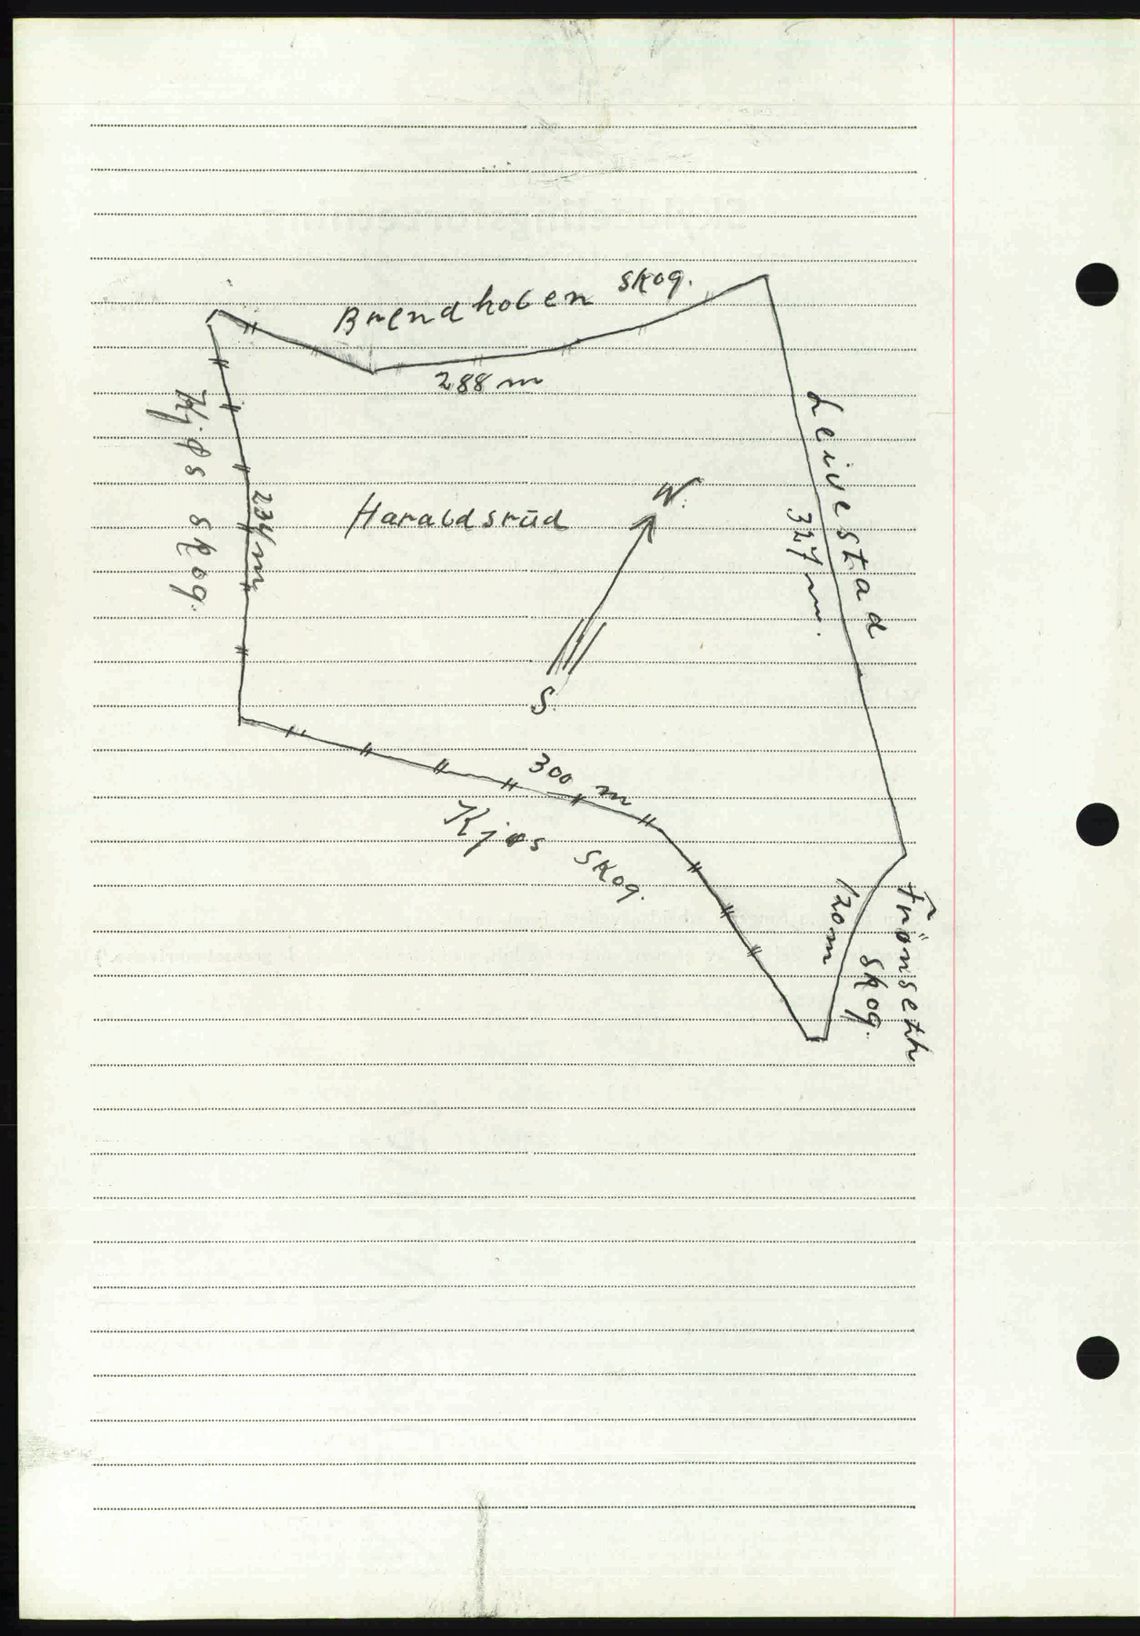 Brendholen skog.
288 m
Leivestad
327 m.
Kjøs skog.
234 m
Haraldsrud
N.
S.
300 m
Kjøs skog.
120 m
Frønseth
skog.